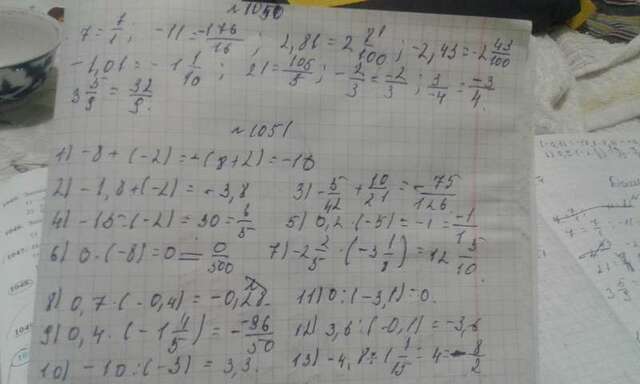 №1050
7 = 7/1; -11 = -176/16; 2,81 = 2 81/100; -2,43 = -2 43/100
-1,01 = -1 1/10; 21 = 105/5; -2/3 = -2/3; 3/-4 = -3/4.
3 5/9 = 32/9.
№1051
1) -8 + (-2) = -(8+2) = -10
2) -1,8 + (-2) = -3,8 3) -5/42 + 10/21 = -75/126.
4) -15·(-2) = 30 = 6/5 5) 0,2·(-5) = -1 = -1/1
6) 0·(-8) = 0 = 0/500 7) -2 2/5·(-3 1/8) = 12 5/10.
8) 0,7·(-0,4) = -0,28. 11) 0:(-3,1) = 0.
9) 0,4·(-1 4/5) = -36/50 12) 3,6:(-0,1) = -3,6
10) -10:(-3) = 3,3. 13) -4,8:(1/15 = 4 = -8/2